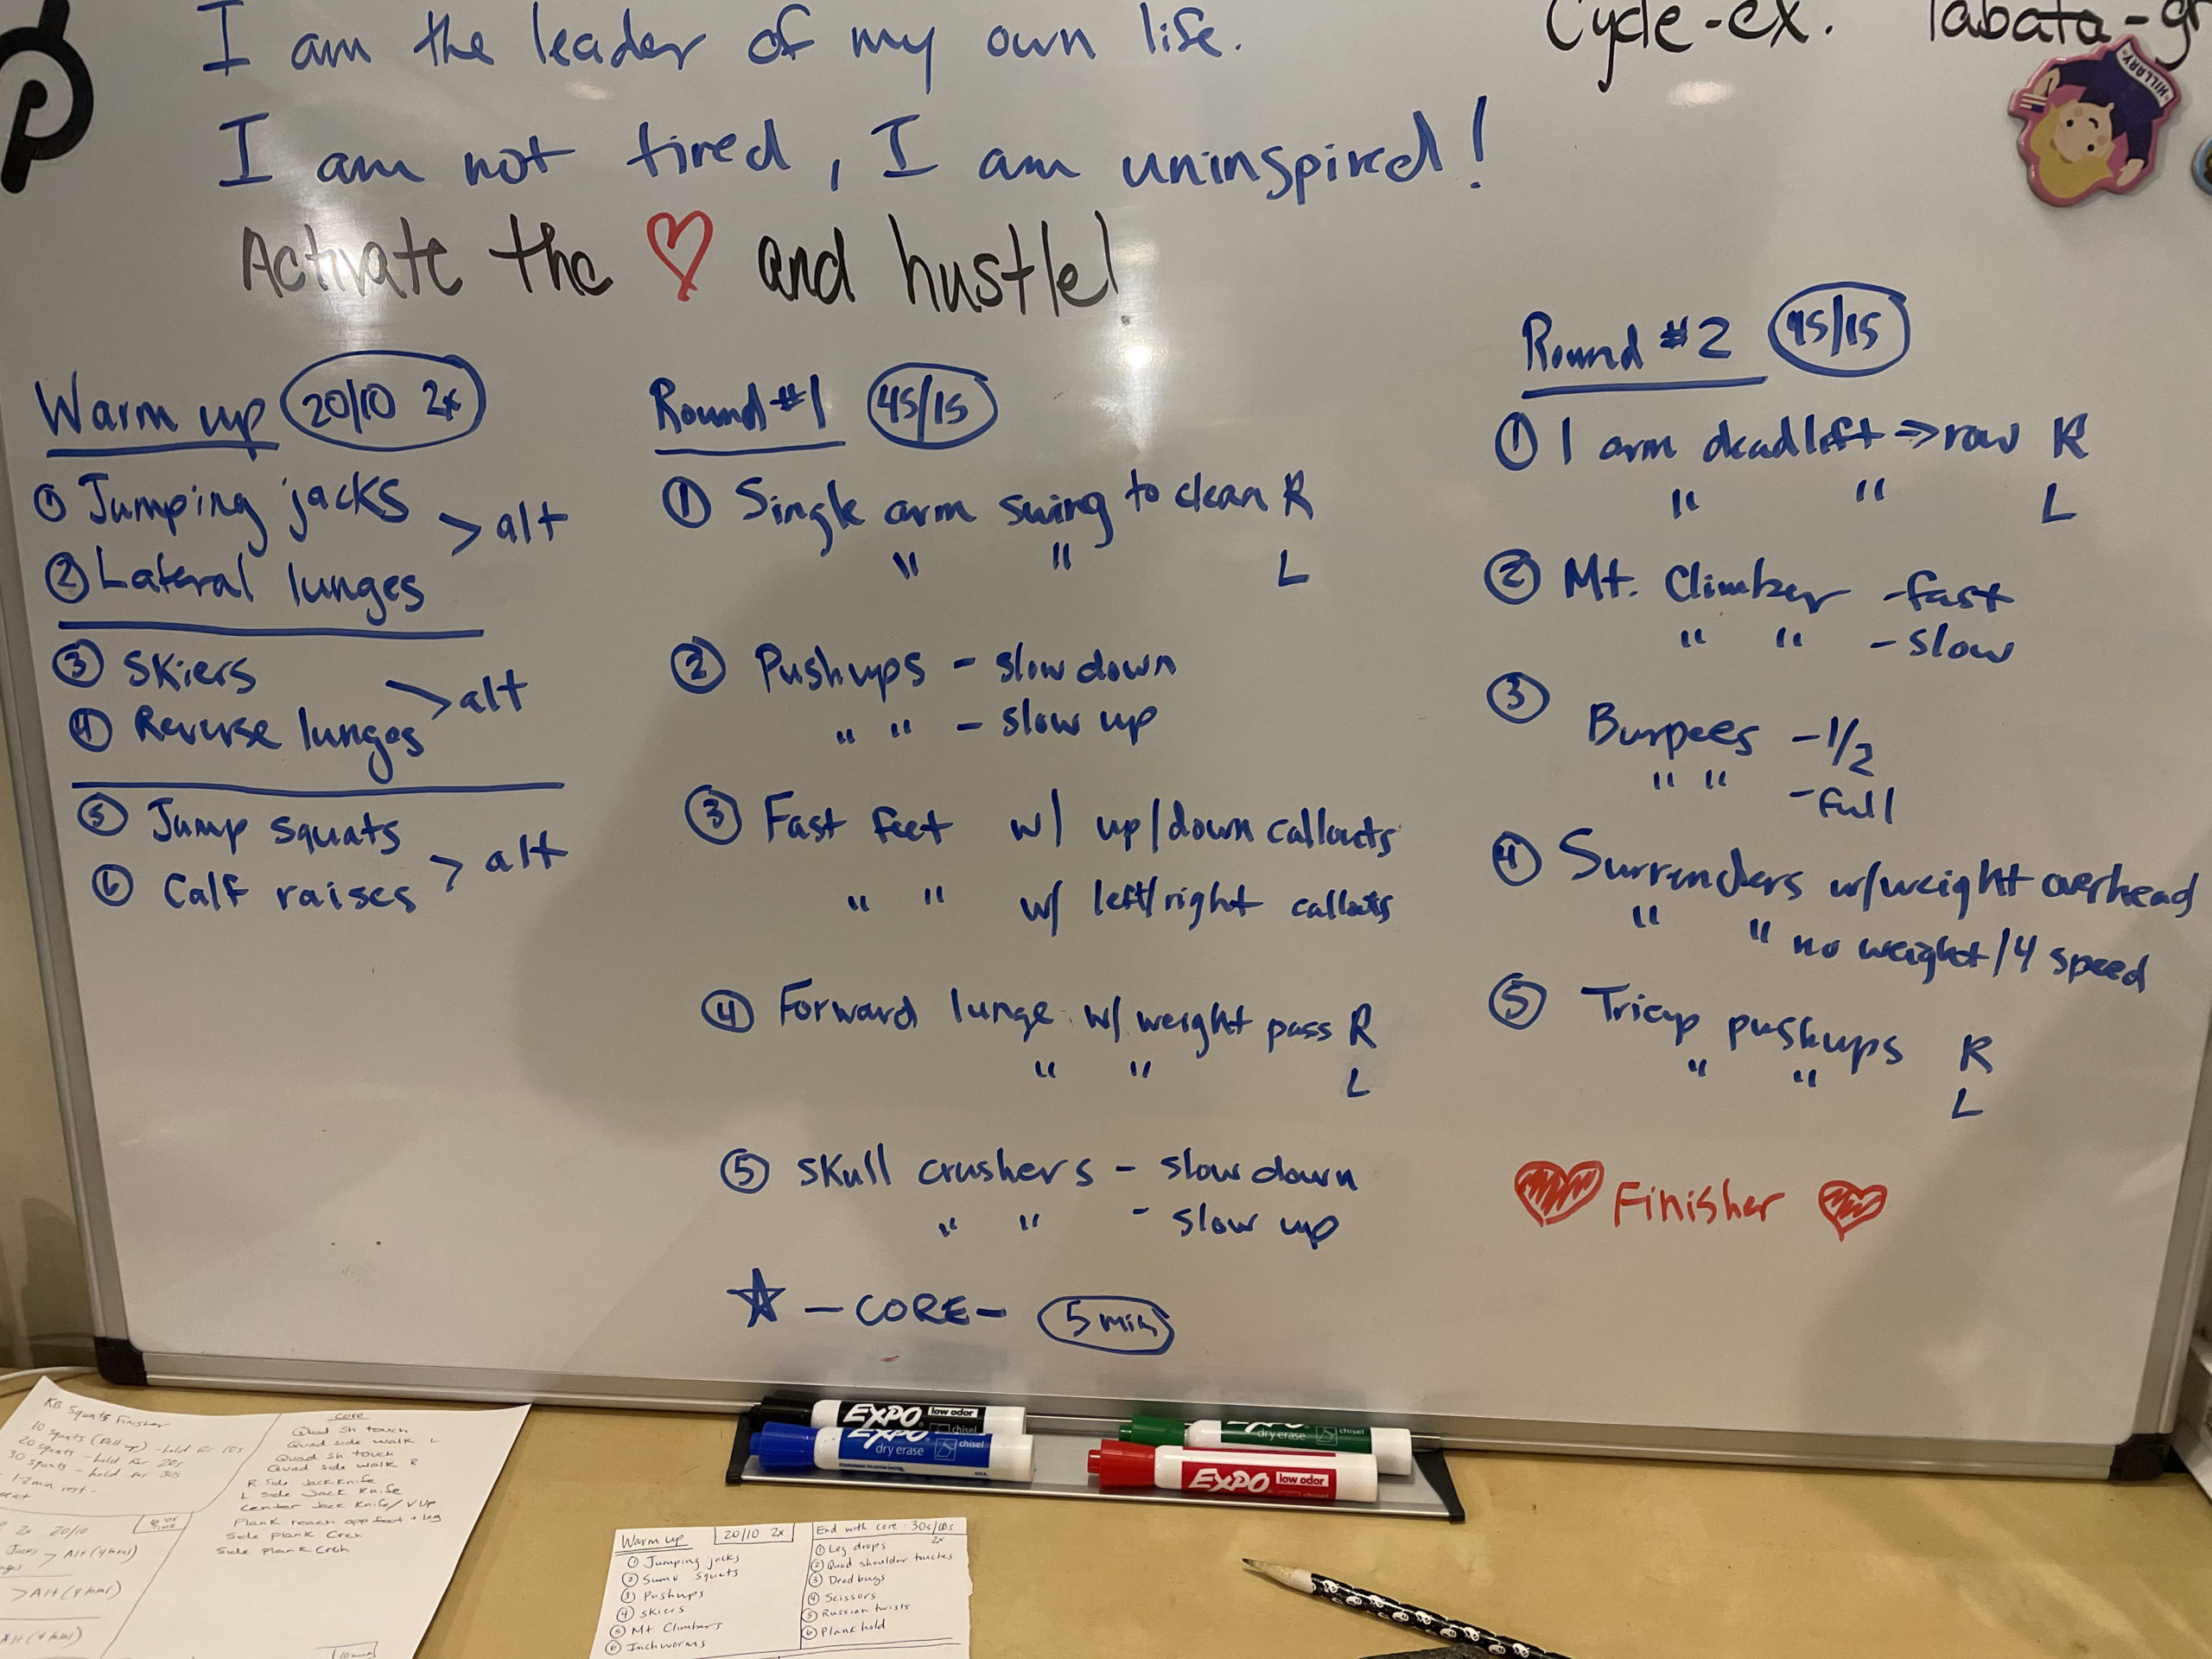 I am the leader of my own life.
I am not tired, I am uninspired!
Activate the ♡ and hustle!
Cycle-ex. Tabata-
HILLARY
Warm up 20/10 2x
① Jumping jacks
② Lateral lunges
> alt
③ Skiers
④ Reverse lunges
> alt
⑤ Jump squats
⑥ Calf raises
> alt
Round #1 45/15
① Single arm swing to clean R
" " L
② Pushups - slow down
" " - slow up
③ Fast feet w/ up/down callouts
" " w/ left/right callouts
④ Forward lunge w/ weight pass R
" " L
⑤ Skull crushers - slow down
" " - slow up
☆ - CORE - 5 min
Round #2 45/15
① 1 arm deadlift => row R
" " L
② Mt. Climber - fast
" " - slow
③ Burpees - 1/2
" " - full
④ Surrenders w/weight overhead
" " no weight/4 speed
⑤ Tricep pushups R
" " L
♥ Finisher ♥
EXPO low odor
chisel
EXPO
dry erase chisel
EXPO
dry erase chisel
EXPO low odor
chisel
KB Squats Finisher
10 squats (Full up) - hold for 10s
20 squats - hold for 20s
30 squats - hold for 30s
1-2 min rest -
2x 20/10
Jacks > Alt (4 total)
> Alt (4 total)
Core
Quad Sh touch
Quad side walk L
Quad Sh touch
Quad side walk R
R Side Jack Knife
L Side Jack Knife
Center Jack Knife/V Up
Plank reach opp foot + leg
Side plank Crch
Side plank Crch
10 min
Warm up 20/10 2x
① Jumping jacks
② Sumo squats
③ Pushups
④ Skiers
⑤ Mt Climbers
⑥ Inchworms
End with core 30s/10s
2x
① Leg drops
② Quad shoulder touches
③ Dead bugs
④ Scissors
⑤ Russian twists
⑥ Plank hold